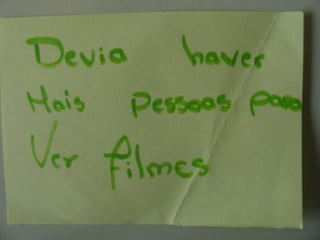 Devia haver
Mais pessoas para
Ver filmes